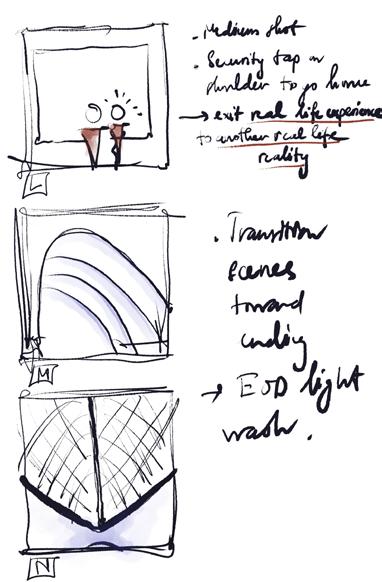 . Medium shot
. Security tap on
shoulder to go home
→ exit real life experience
to another real life
reality
L
. Transition
scenes
toward
ending
→ EOD light
wash.
M
N